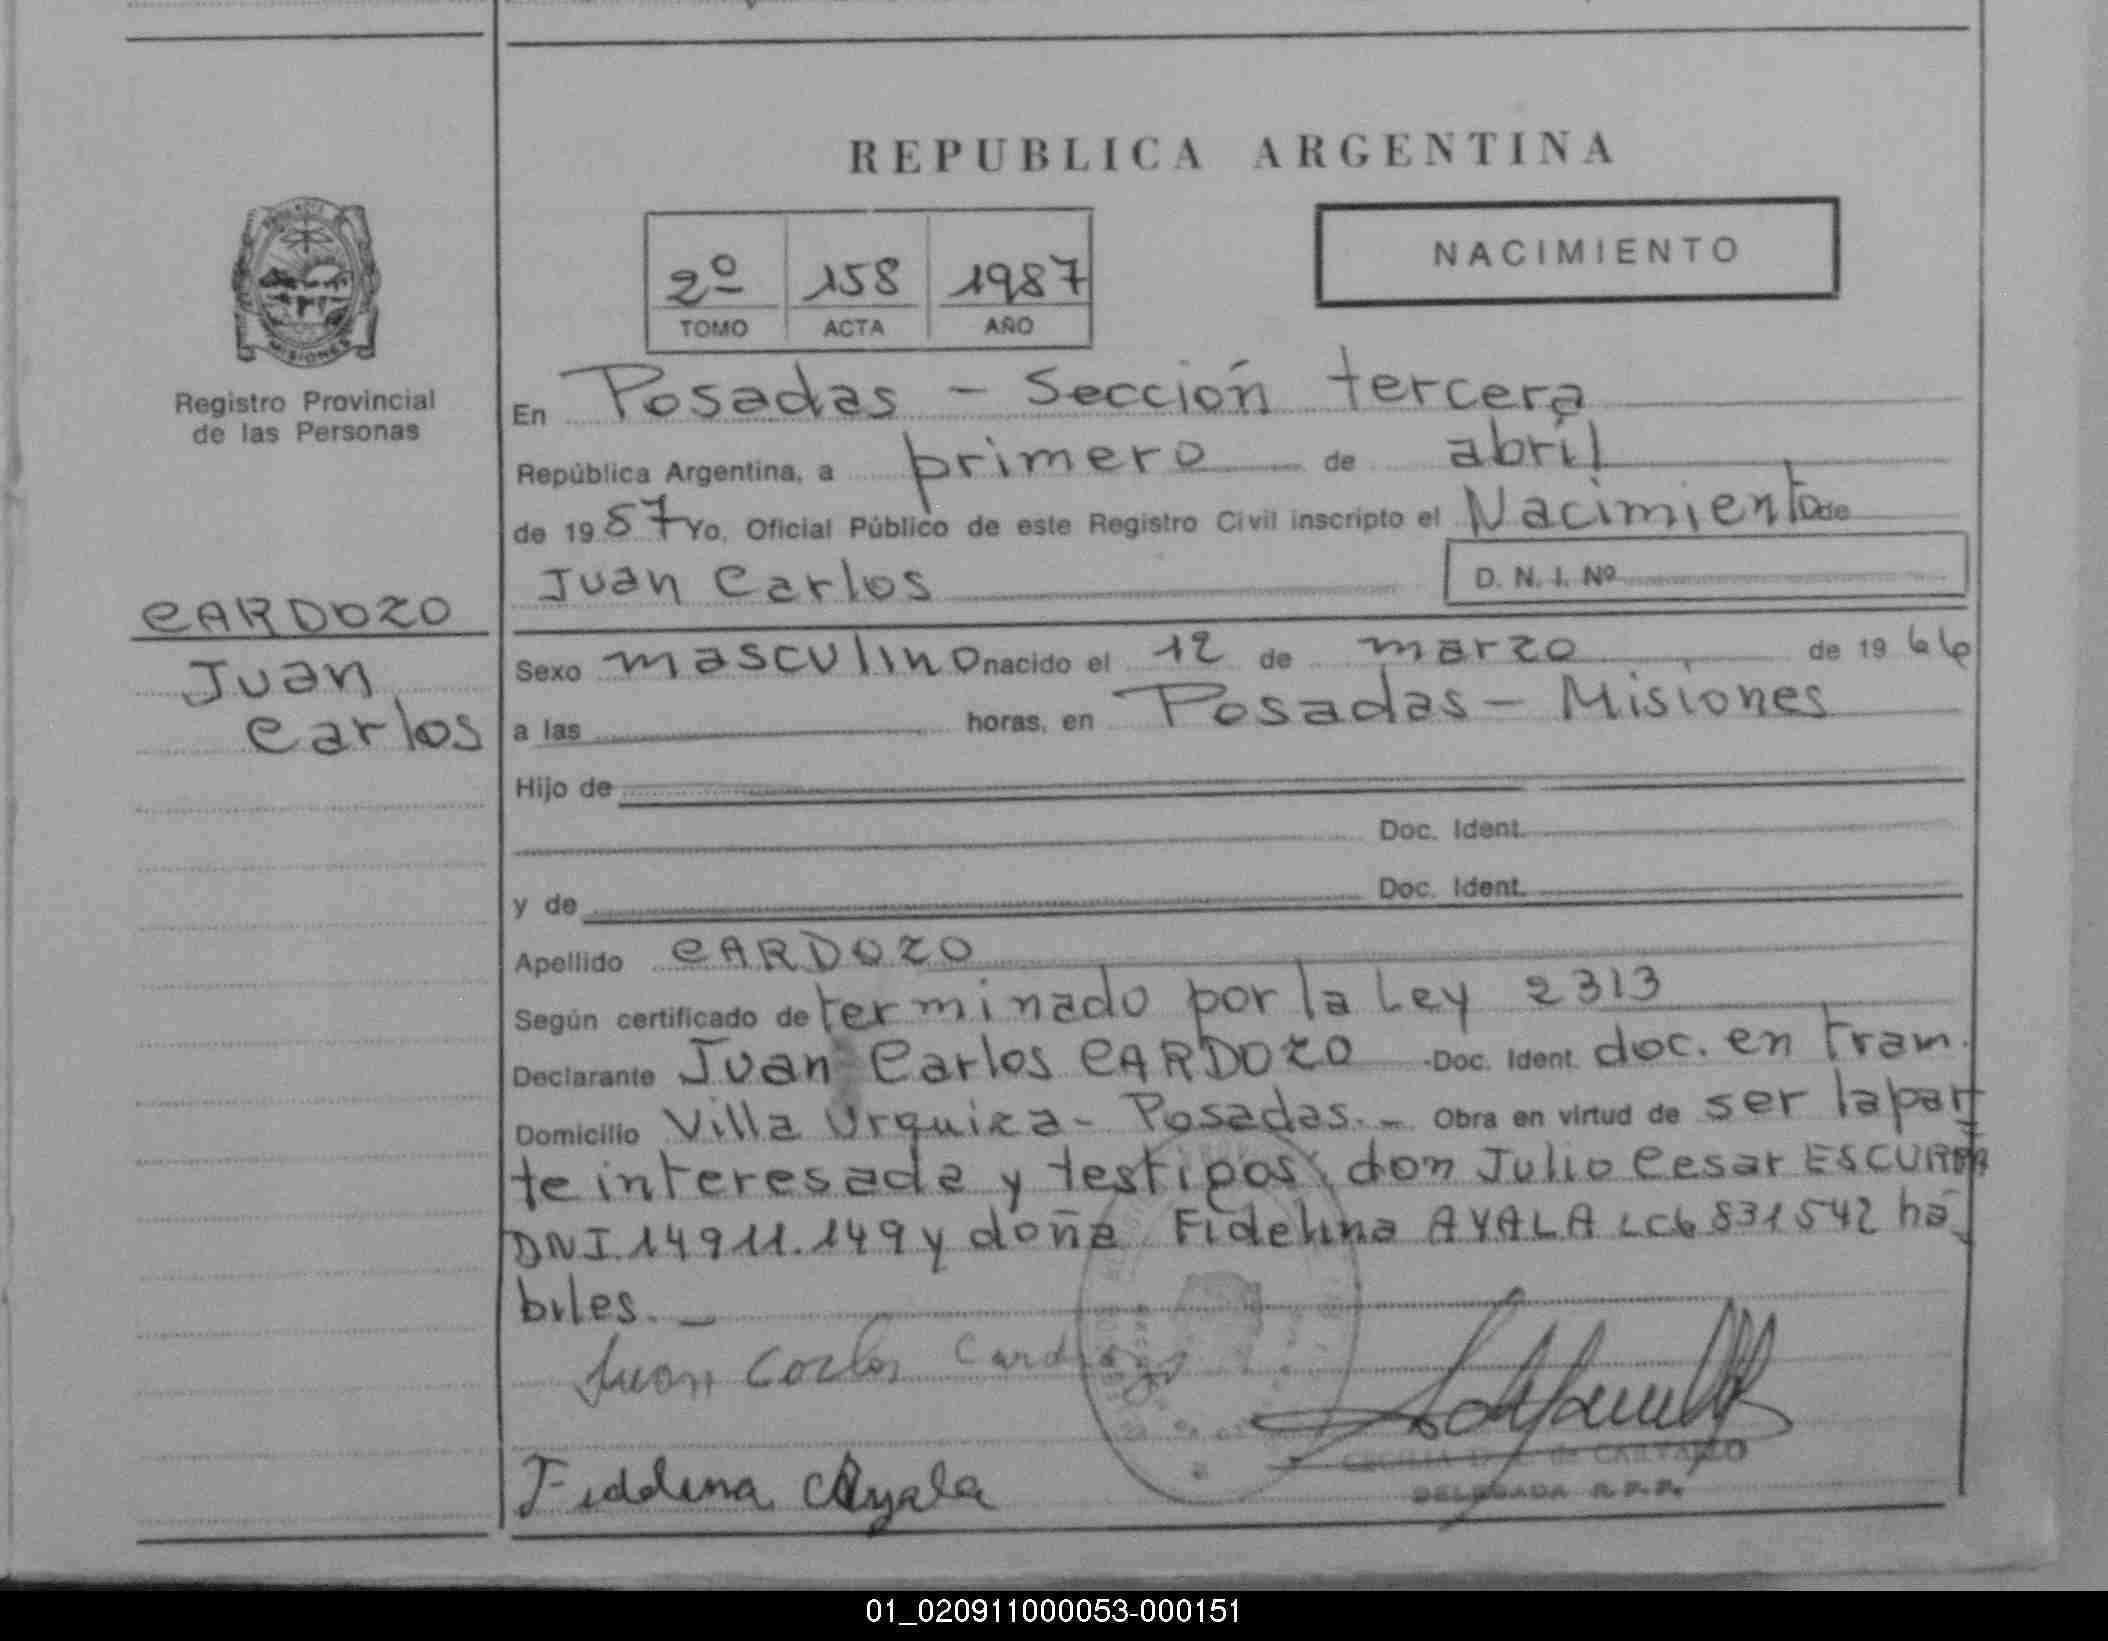 REPUBLICA ARGENTINA
NACIMIENTO
2º 158 1987
TOMO ACTA AÑO
MISIONES
Registro Provincial
de las Personas
CARDOZO
Juan
Carlos
En Posadas - Sección tercera
República Argentina, a primero de abril
de 1987 Yo, Oficial Público de este Registro Civil inscripto el Nacimiento de
Juan Carlos D. N. I. Nº
Sexo masculino nacido el 12 de marzo de 1966
a las horas, en Posadas - Misiones
Hijo de
Doc. Ident.
y de Doc. Ident.
Apellido CARDOZO
Según certificado de terminado por la Ley 2313
Declarante Juan Carlos CARDOZO Doc. Ident. doc. en tram.
Domicilio Villa Urquiza - Posadas. - Obra en virtud de ser la par
te interesada y testigos: don Julio Cesar
DNI 14911.149 y doña Fidelina AYALA LC6831542 há
biles. -
Juan Carlos Cardozo
Fidelina Ayala
de CARVALLO
DELEGADA R.P.P.
01_020911000053-000151